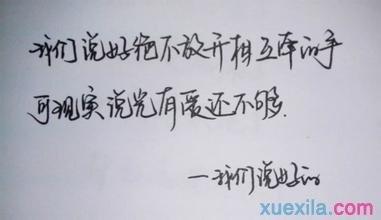 我们说好绝不放开相互牵的手
可现实说光有爱还不够.
—我们说好的
学习啦
xuexila.com